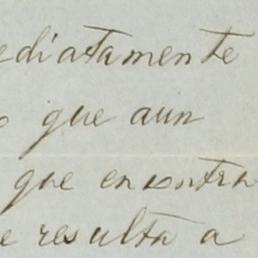 ediatamente
o que aun
que encontra
e resulta a